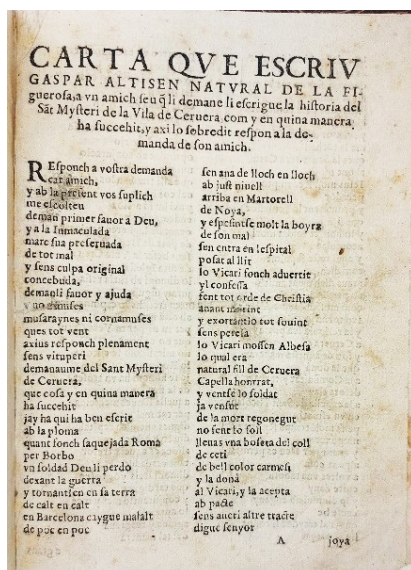 CARTA QVE ESCRIV
GASPAR ALTISEN NATVRAL DE LA FI-
guerosa, a vn amich seu q̃ li demane li escrigue la historia del
Sãt Mysteri de la Vila de Ceruera com y en quina manera
ha succehit, y axi lo sobredit respon a la de-
manda de son amich.
REsponch a vostra demanda
car amich,
y ab la present vos suplich
me escolteu
deman primer fauor a Deu,
y a la Inmaculada
mare sua preseruada
de tot mal
y sens culpa original
concebuda,
demanli fauor y ajuda
y no amuses
musaraynes ni cornamuses
ques tot vent
axius responch plenament
sens vituperi
demanaume del Sant Mysteri
de Ceruera,
que cosa y en quina manera
ha succehit
jay ha qui ha ben escrit
ab la ploma
quant fonch saquejada Roma
per Borbo
vn soldad Deu li perdo
dexant la guerra
y tornantsen en sa terra
de calt en calt
en Barcelona caygue malalt
de poc en poc
sen ana de lloch en lloch
ab just niuell
arriba en Martorell
de Noya,
y espesintse molt la boyra
de son mal
sen entra en lespital
posat al llit
lo Vicari fonch aduertit
yl confessa
fent tot orde de Christia
anant morint
y exortantlo tot souint
sens peresa
lo Vicari mossen Albesa
lo qual era
natural fill de Ceruera
Capella honrrat,
y ventse lo soldat
ja vensut
de la mort regonegut
no sent lo foll
lleuas vna boseta del coll
de ceti
de bell color carmesi
y la dona
al Vicari, y la acepta
ab pacte
sens aueri altre tracte
digue senyor
A joya